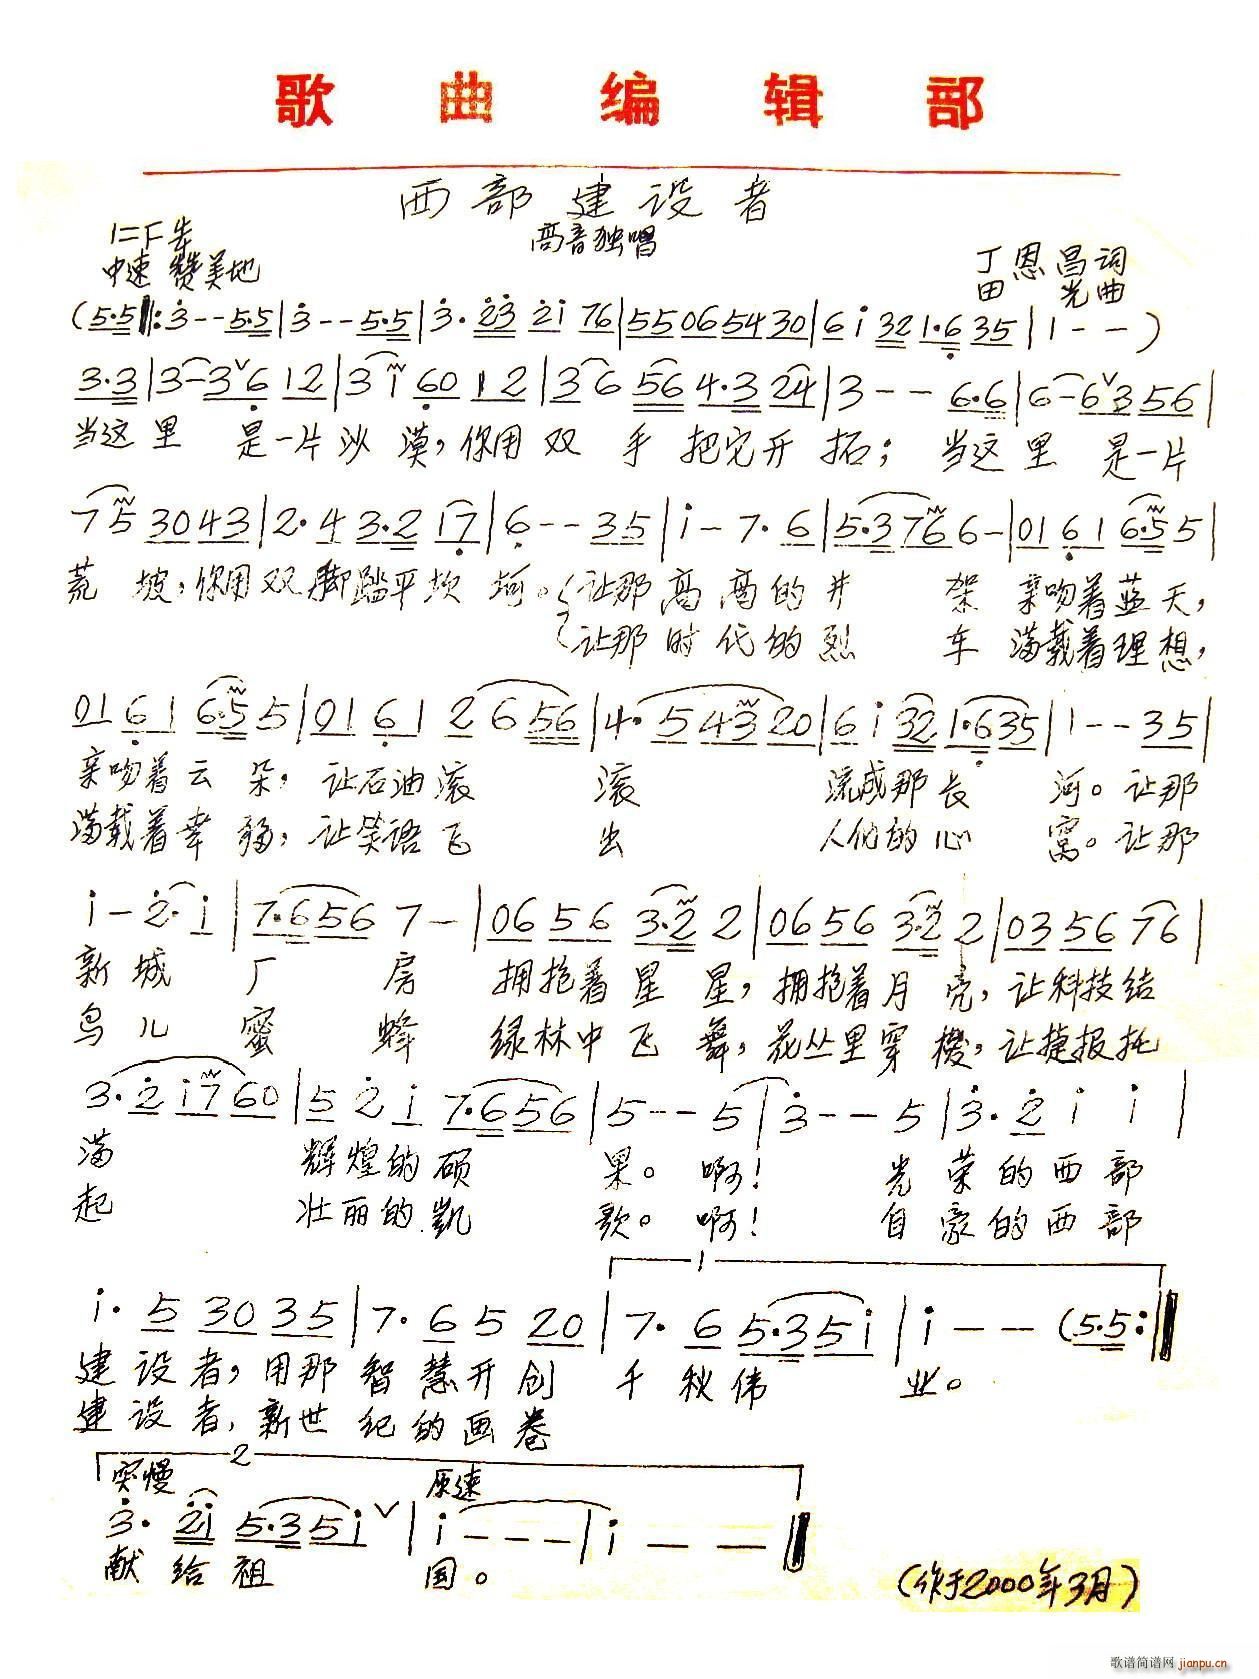 歌曲编辑部
西部建设者
高音独唱
1=F 4/4
中速 赞美地
丁恩昌词
田光曲
(5·5‖:3--5·5|3--5·5|3·23 2i 76|55065430|6i321·635|1--)
3·3|3-3∨612|3i6012|36564·324|3--6·6|6-6∨356|
当这里 是一片沙漠,你用双 手把它开拓;当这里 是一片
753043|2·43·217|6--35|i-7·6|5·3766-|01616·55|
荒坡,你用双脚踏平坎坷。让那高高的井 架 亲吻着蓝天,
让那时代的烈 车 满载着理想,
01616·55|01612656|4·54320|6i321·635|1--35|
亲吻着云朵,让石油滚 滚 流成那长 河。让那
满载着幸福,让笑语飞 出 人们的心 窝。让那
i-2·i|7·6567-|06563·22|06563·22|035676|
新城 厂 房 拥抱着星星,拥抱着月亮,让科技结
鸟儿 蜜 蜂 绿林中飞舞,花丛里穿梭,让捷报托
3·2i760|52i7·656|5--5|3--5|3·2ii|
满 辉煌的硕 果。啊! 光荣的西部
起 壮丽的凯 歌。啊! 自豪的西部
1
i·53035|7·6520|7·65·35i|i--(5·5:‖
建设者,用那智慧开创 千秋伟 业。
建设者,新世纪的画卷
2
突慢 原速
3·2i5·35i∨|i---|i--‖
献给祖 国。
(作于2000年3月)
歌谱简谱网 jianpu.cn